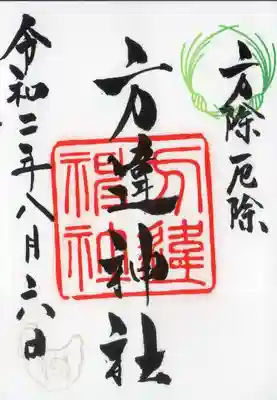 方除厄除
方違神社
方違
神社
令和二年八月六日